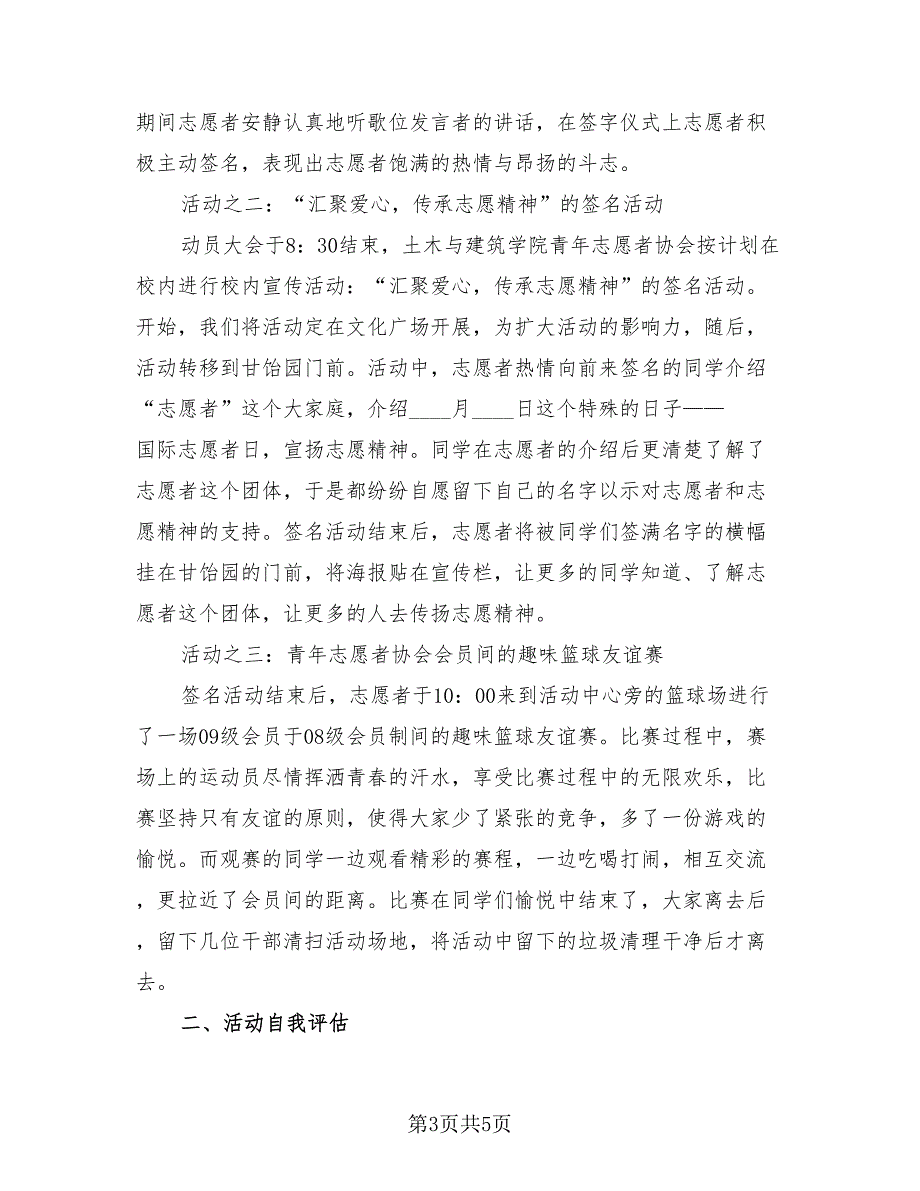 期间志愿者安静认真地听歌位发言者的讲话，在签字仪式上志愿者积
极主动签名，表现出志愿者饱满的热情与昂扬的斗志。
活动之二：“汇聚爱心，传承志愿精神”的签名活动
动员大会于8：30结束，土木与建筑学院青年志愿者协会按计划在
校内进行校内宣传活动：“汇聚爱心，传承志愿精神”的签名活动。
开始，我们将活动定在文化广场开展，为扩大活动的影响力，随后，
活动转移到甘饴园门前。活动中，志愿者热情向前来签名的同学介绍
“志愿者”这个大家庭，介绍____月____日这个特殊的日子——
国际志愿者日，宣扬志愿精神。同学在志愿者的介绍后更清楚了解了
志愿者这个团体，于是都纷纷自愿留下自己的名字以示对志愿者和志
愿精神的支持。签名活动结束后，志愿者将被同学们签满名字的横幅
挂在甘饴园的门前，将海报贴在宣传栏，让更多的同学知道、了解志
愿者这个团体，让更多的人去传扬志愿精神。
活动之三：青年志愿者协会会员间的趣味篮球友谊赛
签名活动结束后，志愿者于10：00来到活动中心旁的篮球场进行
了一场09级会员于08级会员制间的趣味篮球友谊赛。比赛过程中，赛
场上的运动员尽情挥洒青春的汗水，享受比赛过程中的无限欢乐，比
赛坚持只有友谊的原则，使得大家少了紧张的竞争，多了一份游戏的
愉悦。而观赛的同学一边观看精彩的赛程，一边吃喝打闹，相互交流
，更拉近了会员间的距离。比赛在同学们愉悦中结束了，大家离去后
，留下几位干部清扫活动场地，将活动中留下的垃圾清理干净后才离
去。
二、活动自我评估
第3页共5页